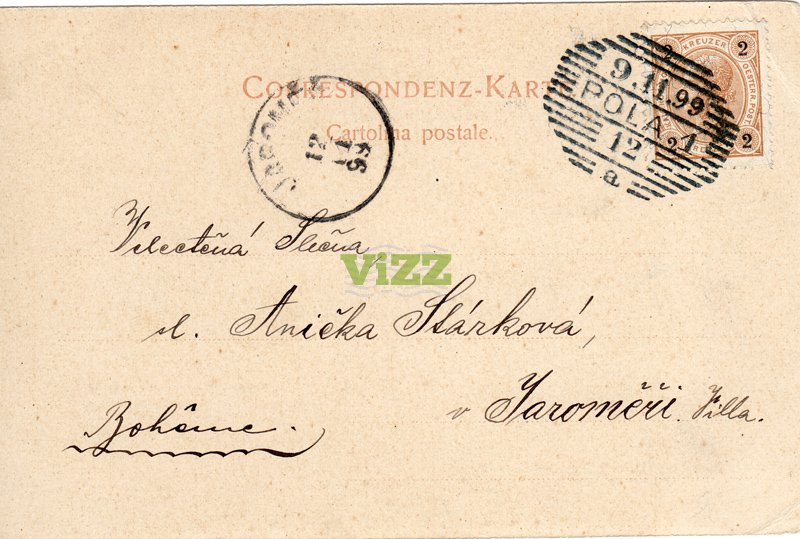 CORRESPONDENZ-KARTE
Cartolina postale.
2 KREUZER 2
OESTERR. POST.
2 2
9.11.99
POLA 1
12
a
JAROMĚŘ
12
11
99
Velectěná Slečna
ViZZ
sl. Anička Stárková,
v Jaroměři. Villa.
Bohême.